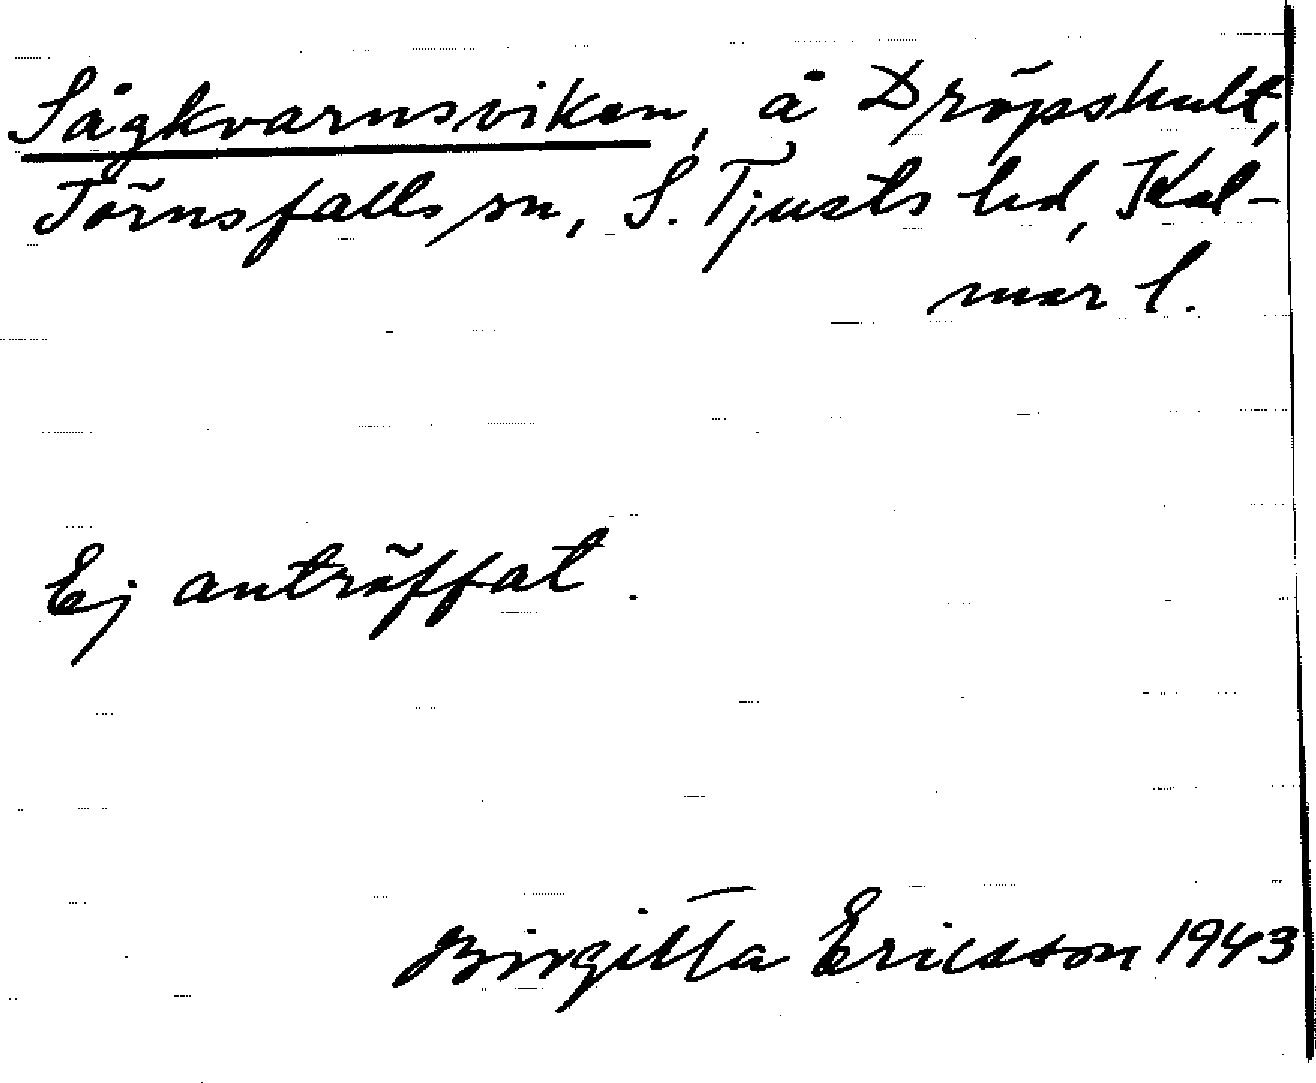 Sågkvarnsviken, å Dröpshult,
Törnsfalls sn, S. Tjusts hd, Kal-
mar l.
Ej anträffat.
Birgitta Ericsson 1943